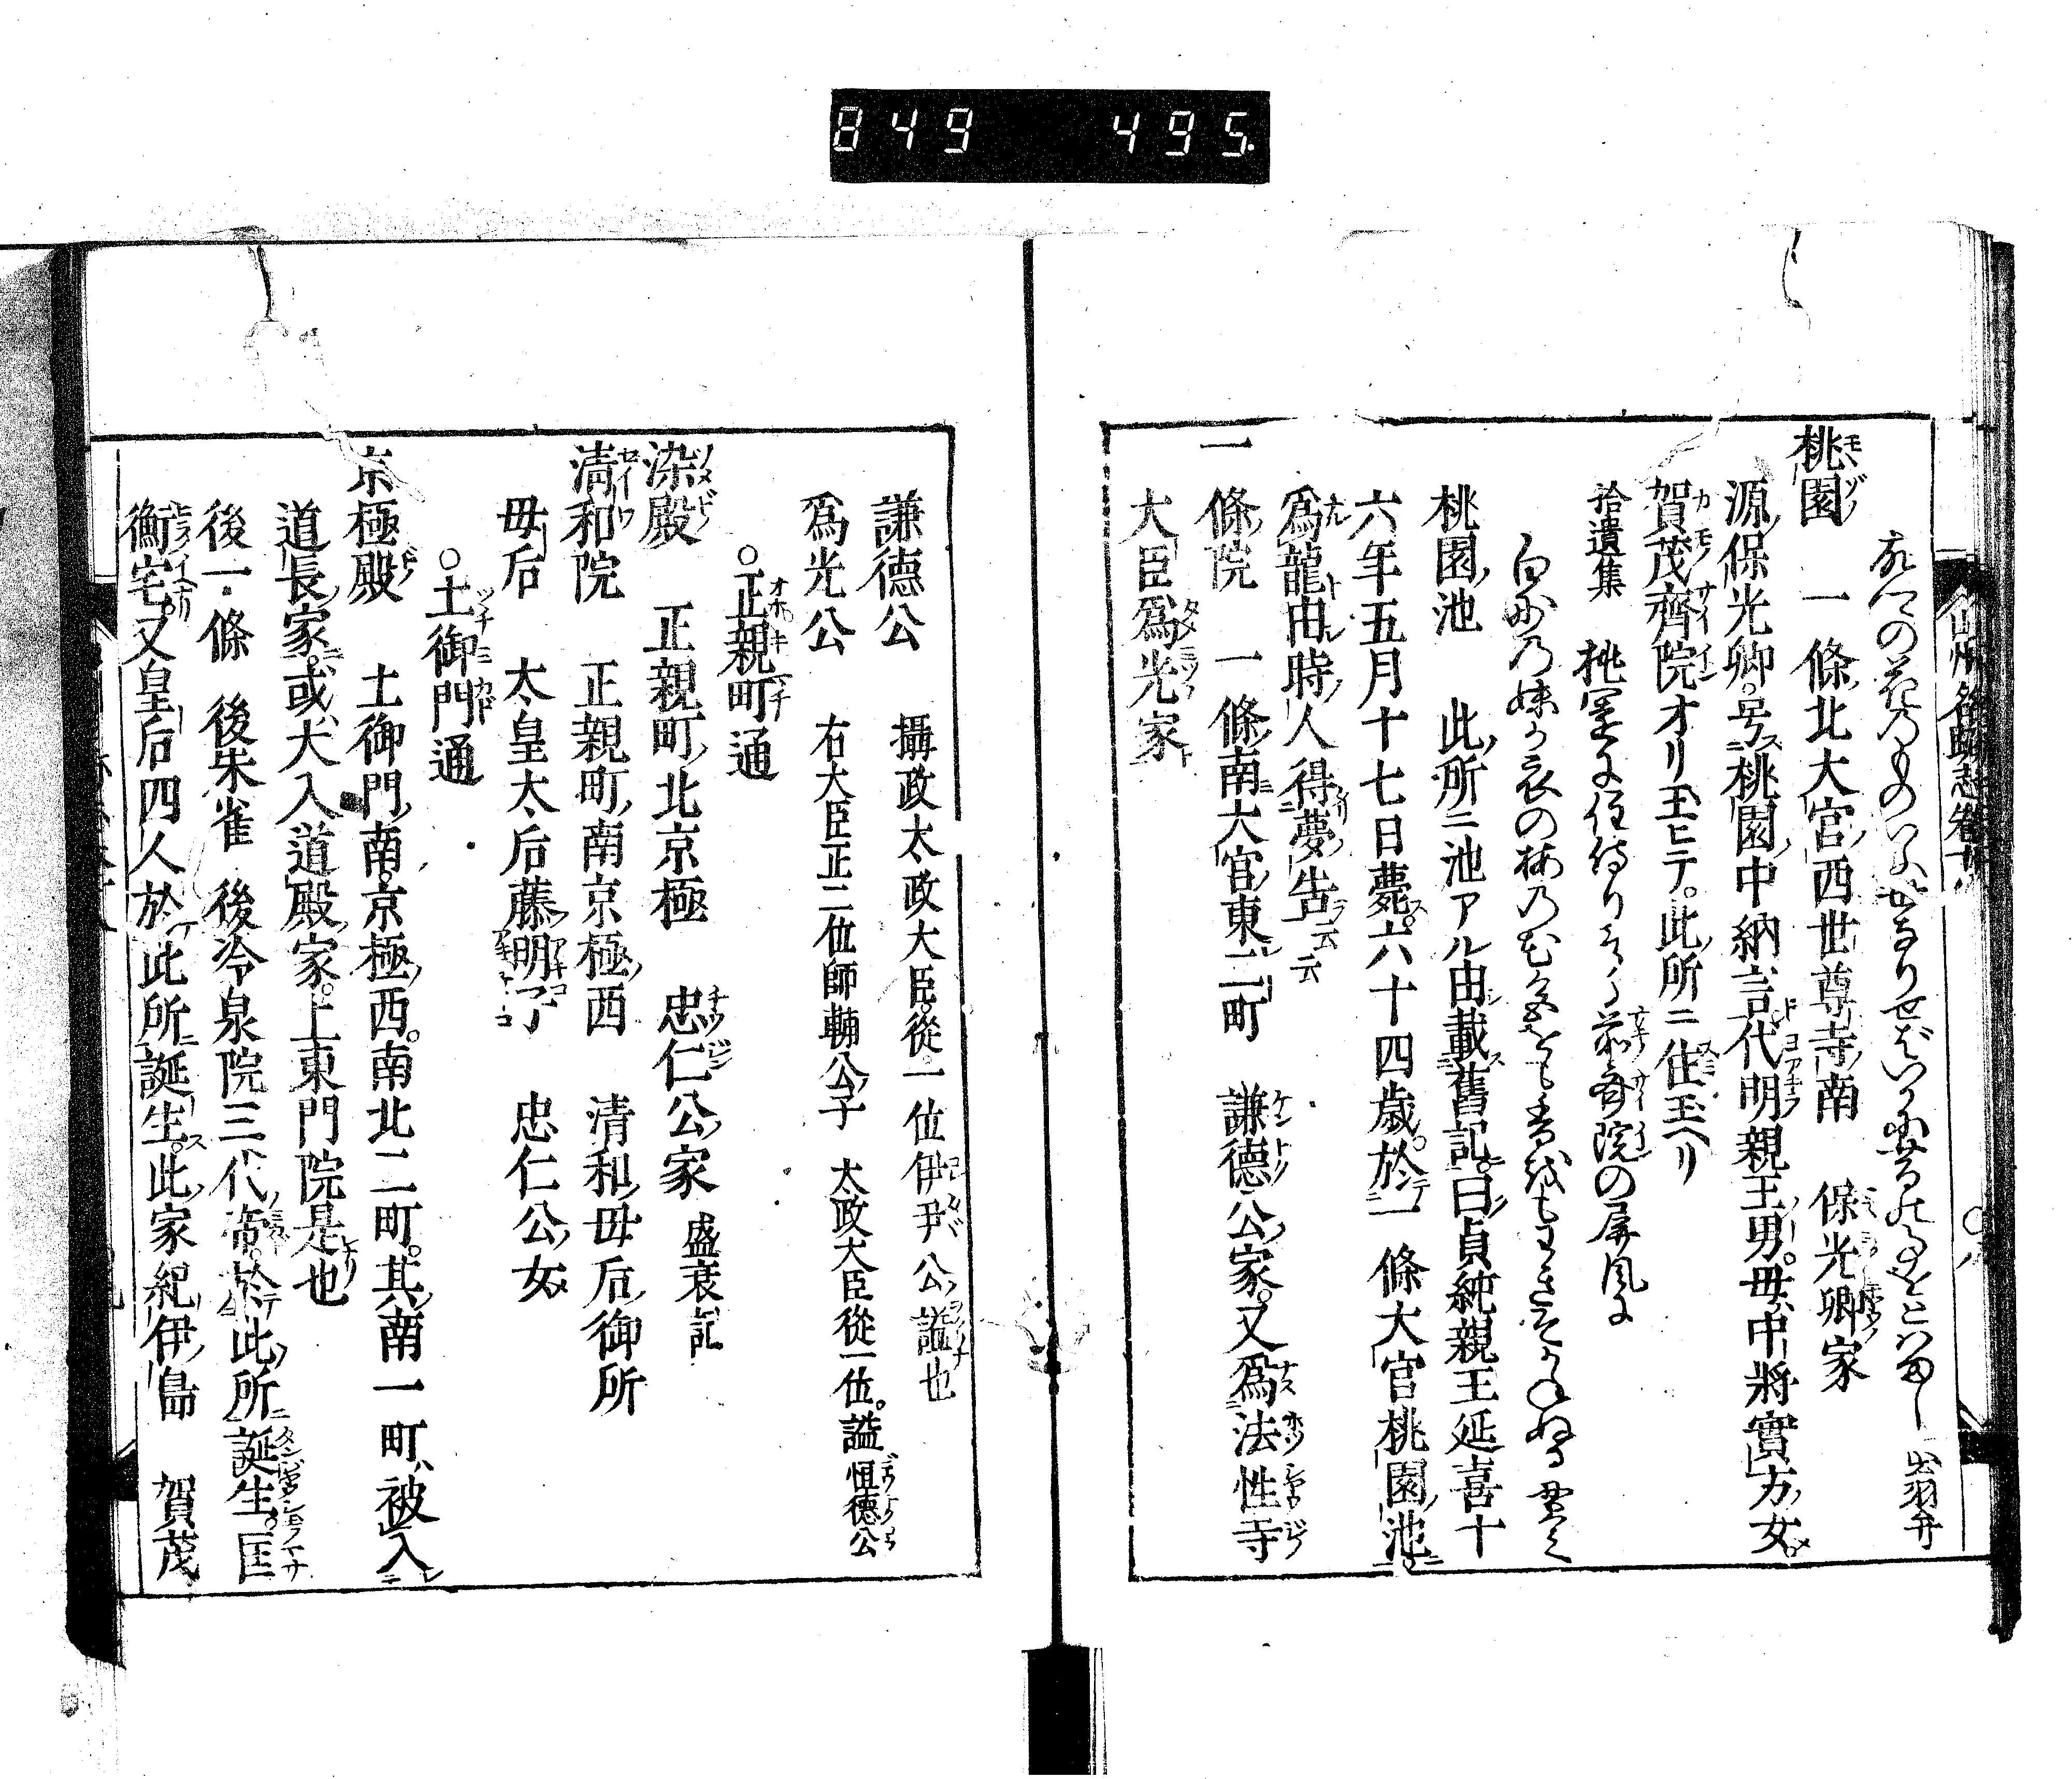 849 495.
山州名跡志卷
桃園 一條北大宮西世尊寺南 保光卿家
源保光卿号桃園中納言代明親王男。母中將實方女。
賀茂齊院オリ玉ヒテ。此所ニ住玉ヘリ
拾遺集 桃園に住侍りける前齋院の屏風に
白妙の妹か衣に梅の花色をも香をもわきそかねぬる 貫之
桃園池 此所ニ池アル由載舊記。曰貞純親王延喜十
六年五月十七日薨。六十四歳。於一條大宮桃園池。
爲龍由時人得夢告云云
一條院 一條南大宮東二町 謙德公家。又爲法性寺
大臣爲光家
謙德公 攝政太政大臣。從一位伊尹公謚也
爲光公 右大臣正二位師輔公子 太政大臣從一位。謚恒德公
○正親町通
染殿 正親町北京極 忠仁公家 盛衰記
清和院 正親町南京極西 清和母后御所
母后 太皇太后藤明子 忠仁公女
○土御門通
京極殿 土御門南。京極西。南北二町。其南一町被入
道長家。或大入道殿家。上東門院是也
後一條 後朱雀 後冷泉院三代帝。於此所誕生。匡
衡宅。又皇后四人於此所誕生。此家紀伊島 賀茂